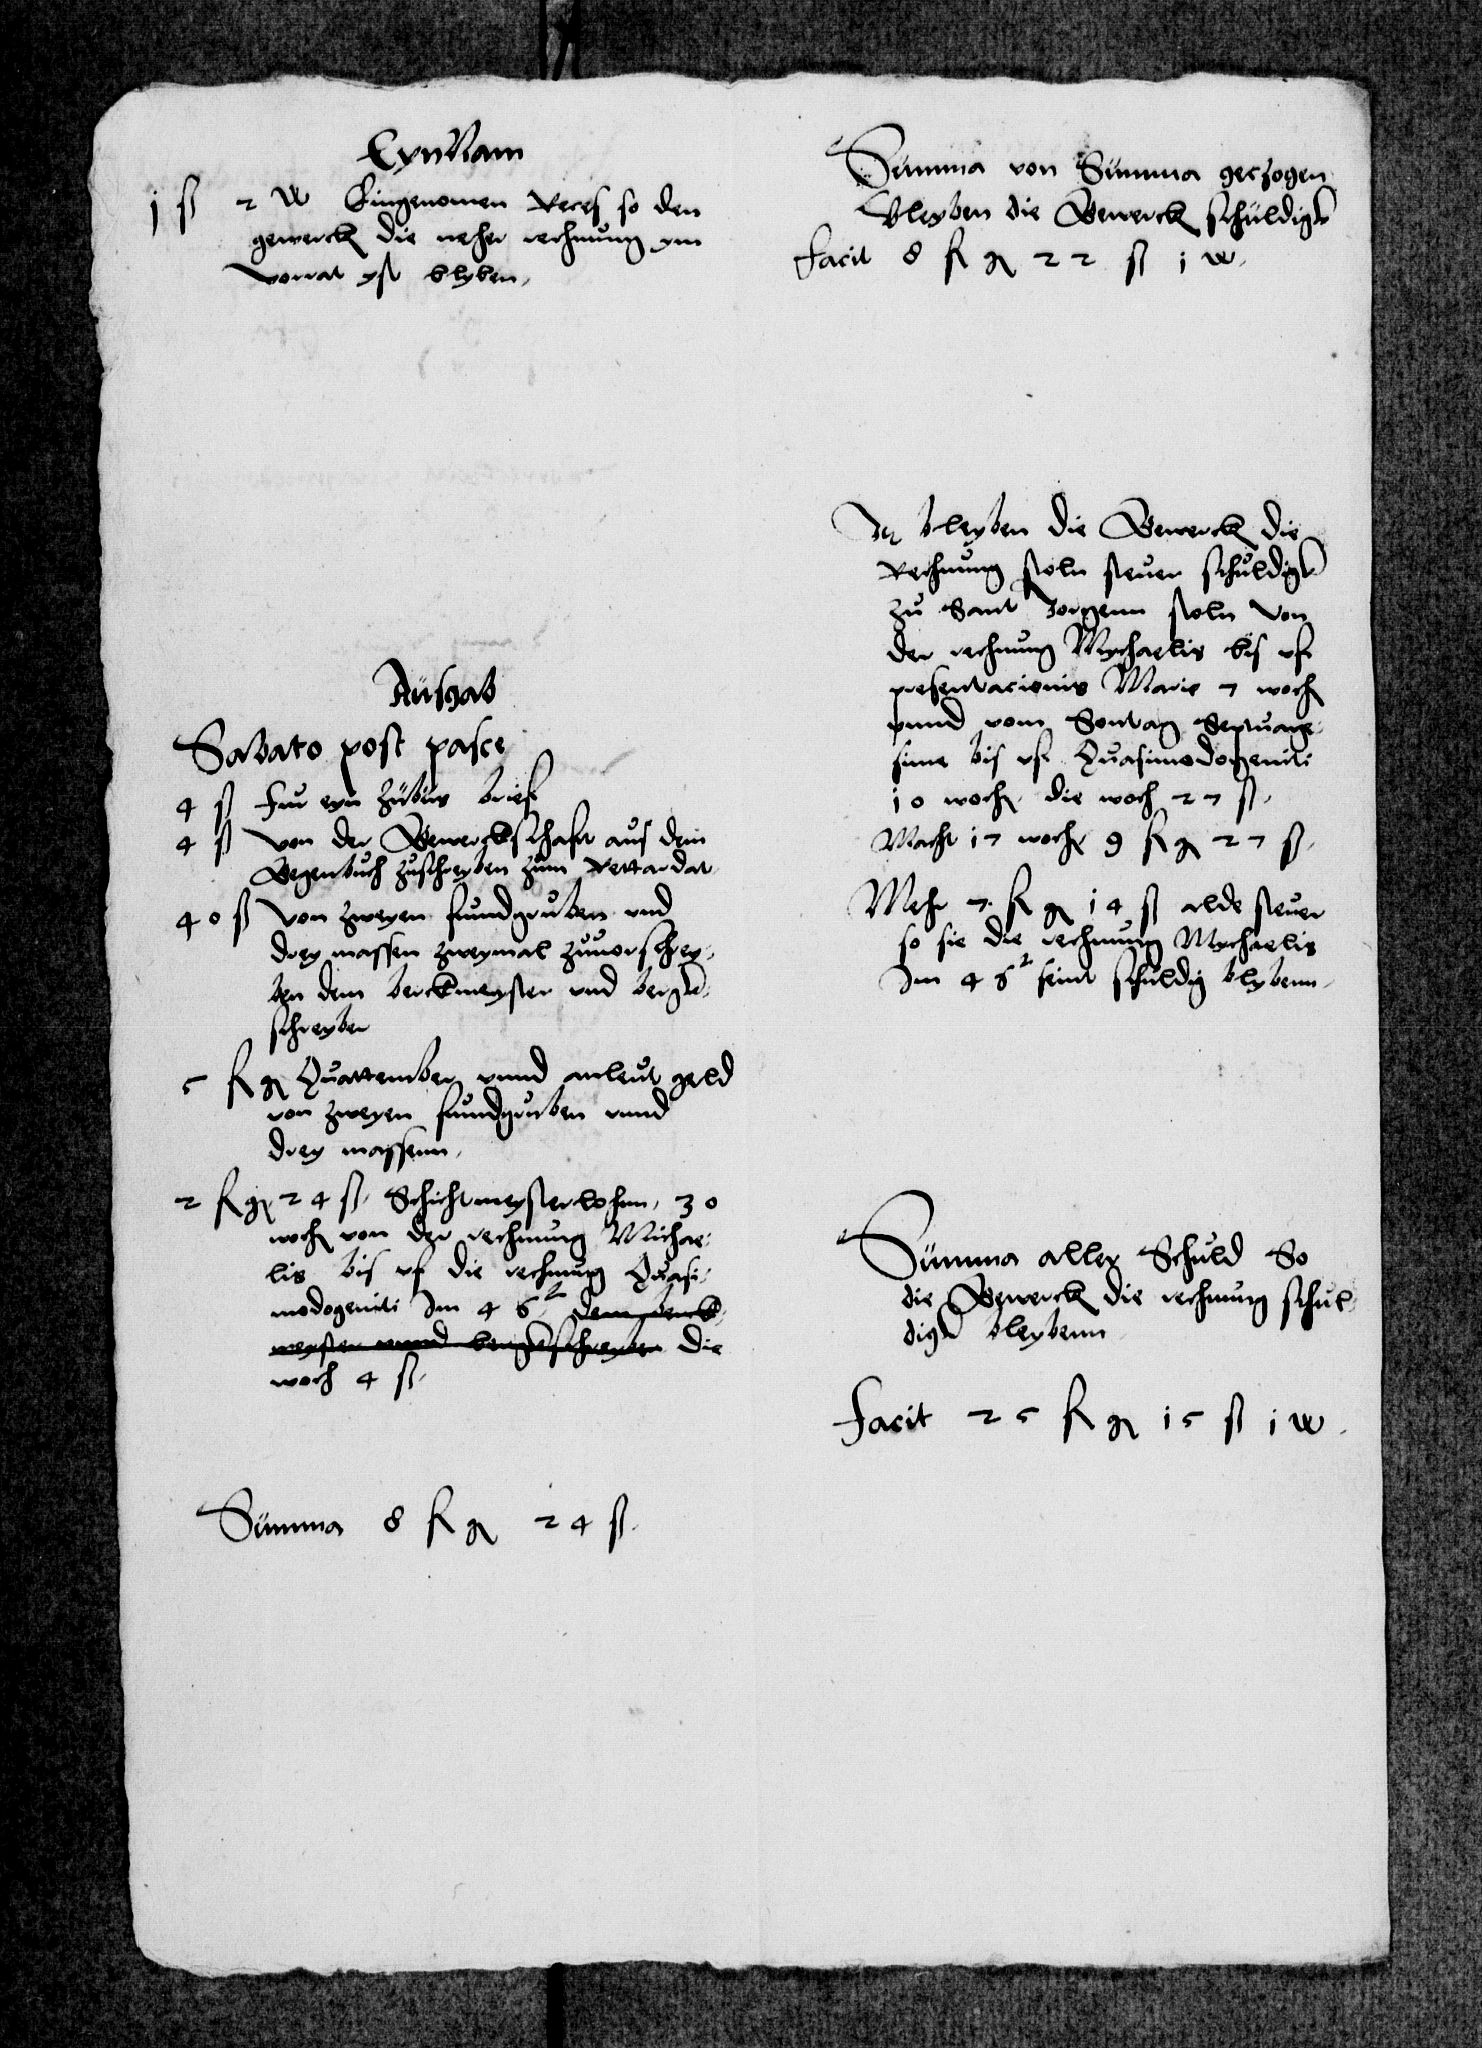 EynNam
j ß 2 W Eingenomen Reces so den
gewerck die neher rechnung ym
vorrat yst blyben,
Ausgab
Sabato post pasce
4 ß Fur eyn zubus brief
4 ß von der Gewerckschaft aus dem
Gegenbuch zuschreyben zum Rettardat
40 ß von zweyen fundgruben und
drey massen zweymal zuuorschrey-
ben dem berckmeyster und berg-
schreyber
5 fl g Quattember vnnd anleut geld
von zweyen fundgruben vnnd
drey massenn,
2 fl g 24 ß, Schichtmeysterlohnn, 30
woch von der rechnung Michae-
lis bis uf die rechnung Quasi-
modogeniti Im 46 2 dem berck-
meyster vnnd bergkschreyber die
woch 4 ß,
Summa 8 fl g 24 ß,
Summa von Summa geczogen
Bleyben die Gewerck schuldig
Facit 8 fl g 22 ß j w,
It bleyben die Gewerck die
Rechnung stoln steuer schuldig
zu Sant Jorgenn stoln von
der rechnung Mychaelis bis uf
presentacionis Marie 7 woch
vnnd vom Sontag Septuage-
sime bis uf Quasimodogeniti
10 woch, die woch 27 ß,
Macht 17 woch 9 fl g 27 ß,
Mehr 7 fl g 14 ß alde steuer
so sie die rechnung Mychaelis
Im 46 2 seint schuldig blybenn,
Summa aller Schuld So
die Gewerck die rechnung schul-
dig bleybenn
Facit 25 fl g 15 ß j w,